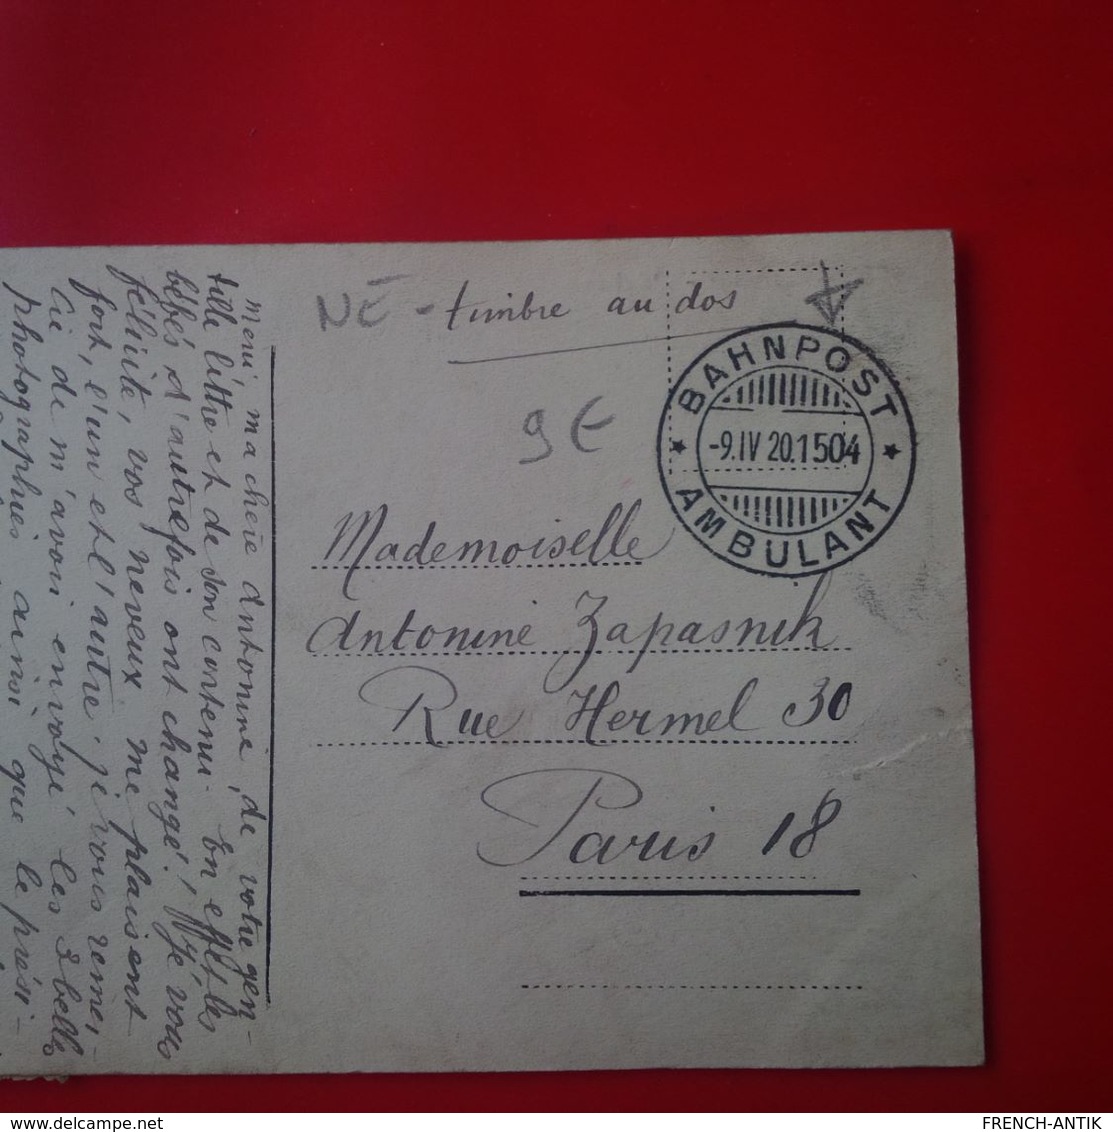 NE - timbre au dos
9 E
BAHNPOST
-9.IV 20.1504
AMBULANT
Mademoiselle
Antonine Zapasnik
Rue Hermel 30
Paris 18
Merci, ma chère Antonine, de votre gen-
tille lettre et de son contenu. En effet les
bébés d'autrefois ont changé! Je vous
félicite, vos neveux me plaisent
fort, l'un et l'autre. je vous remer-
cie de m'avoir envoyé les 3 belles
photographies ainsi que le prési-
FRENCH-ANTIK
delcampe.net